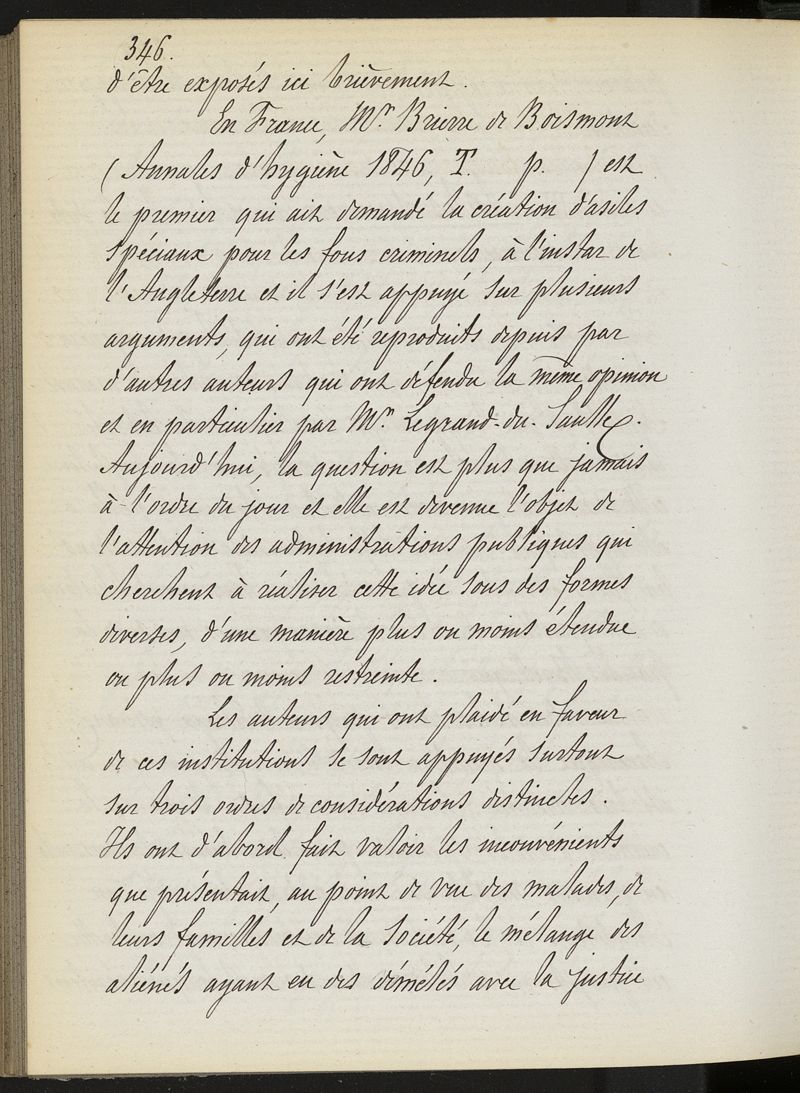 346.
d'être exposés ici brièvement.
En France, Mr Brierre de Boismont
(Annales d'hygiène 1846, T. p. ) est
le premier qui ait demandé la création d'asiles
spéciaux pour les fous criminels, à l'instar de
l'Angleterre et il s'est appuyé sur plusieurs
arguments, qui ont été reproduits depuis par
d'autres auteurs qui ont défendu la même opinion
et en particulier par Mr Legrand-du-Saulle.
Aujourd'hui, la question est plus que jamais
à l'ordre du jour et elle est devenue l'objet de
l'attention des administrations publiques qui
cherchent à réaliser cette idée sous des formes
diverses, d'une manière plus ou moins étendue
ou plus ou moins restreinte.
Les auteurs qui ont plaidé en faveur
de ces institutions se sont appuyés surtout
sur trois ordres de considérations distinctes.
Ils ont d'abord fait valoir les inconvénients
que présentait, au point de vue des malades, de
leurs familles et de la société, le mélange des
aliénés ayant eu des démêlés avec la justice